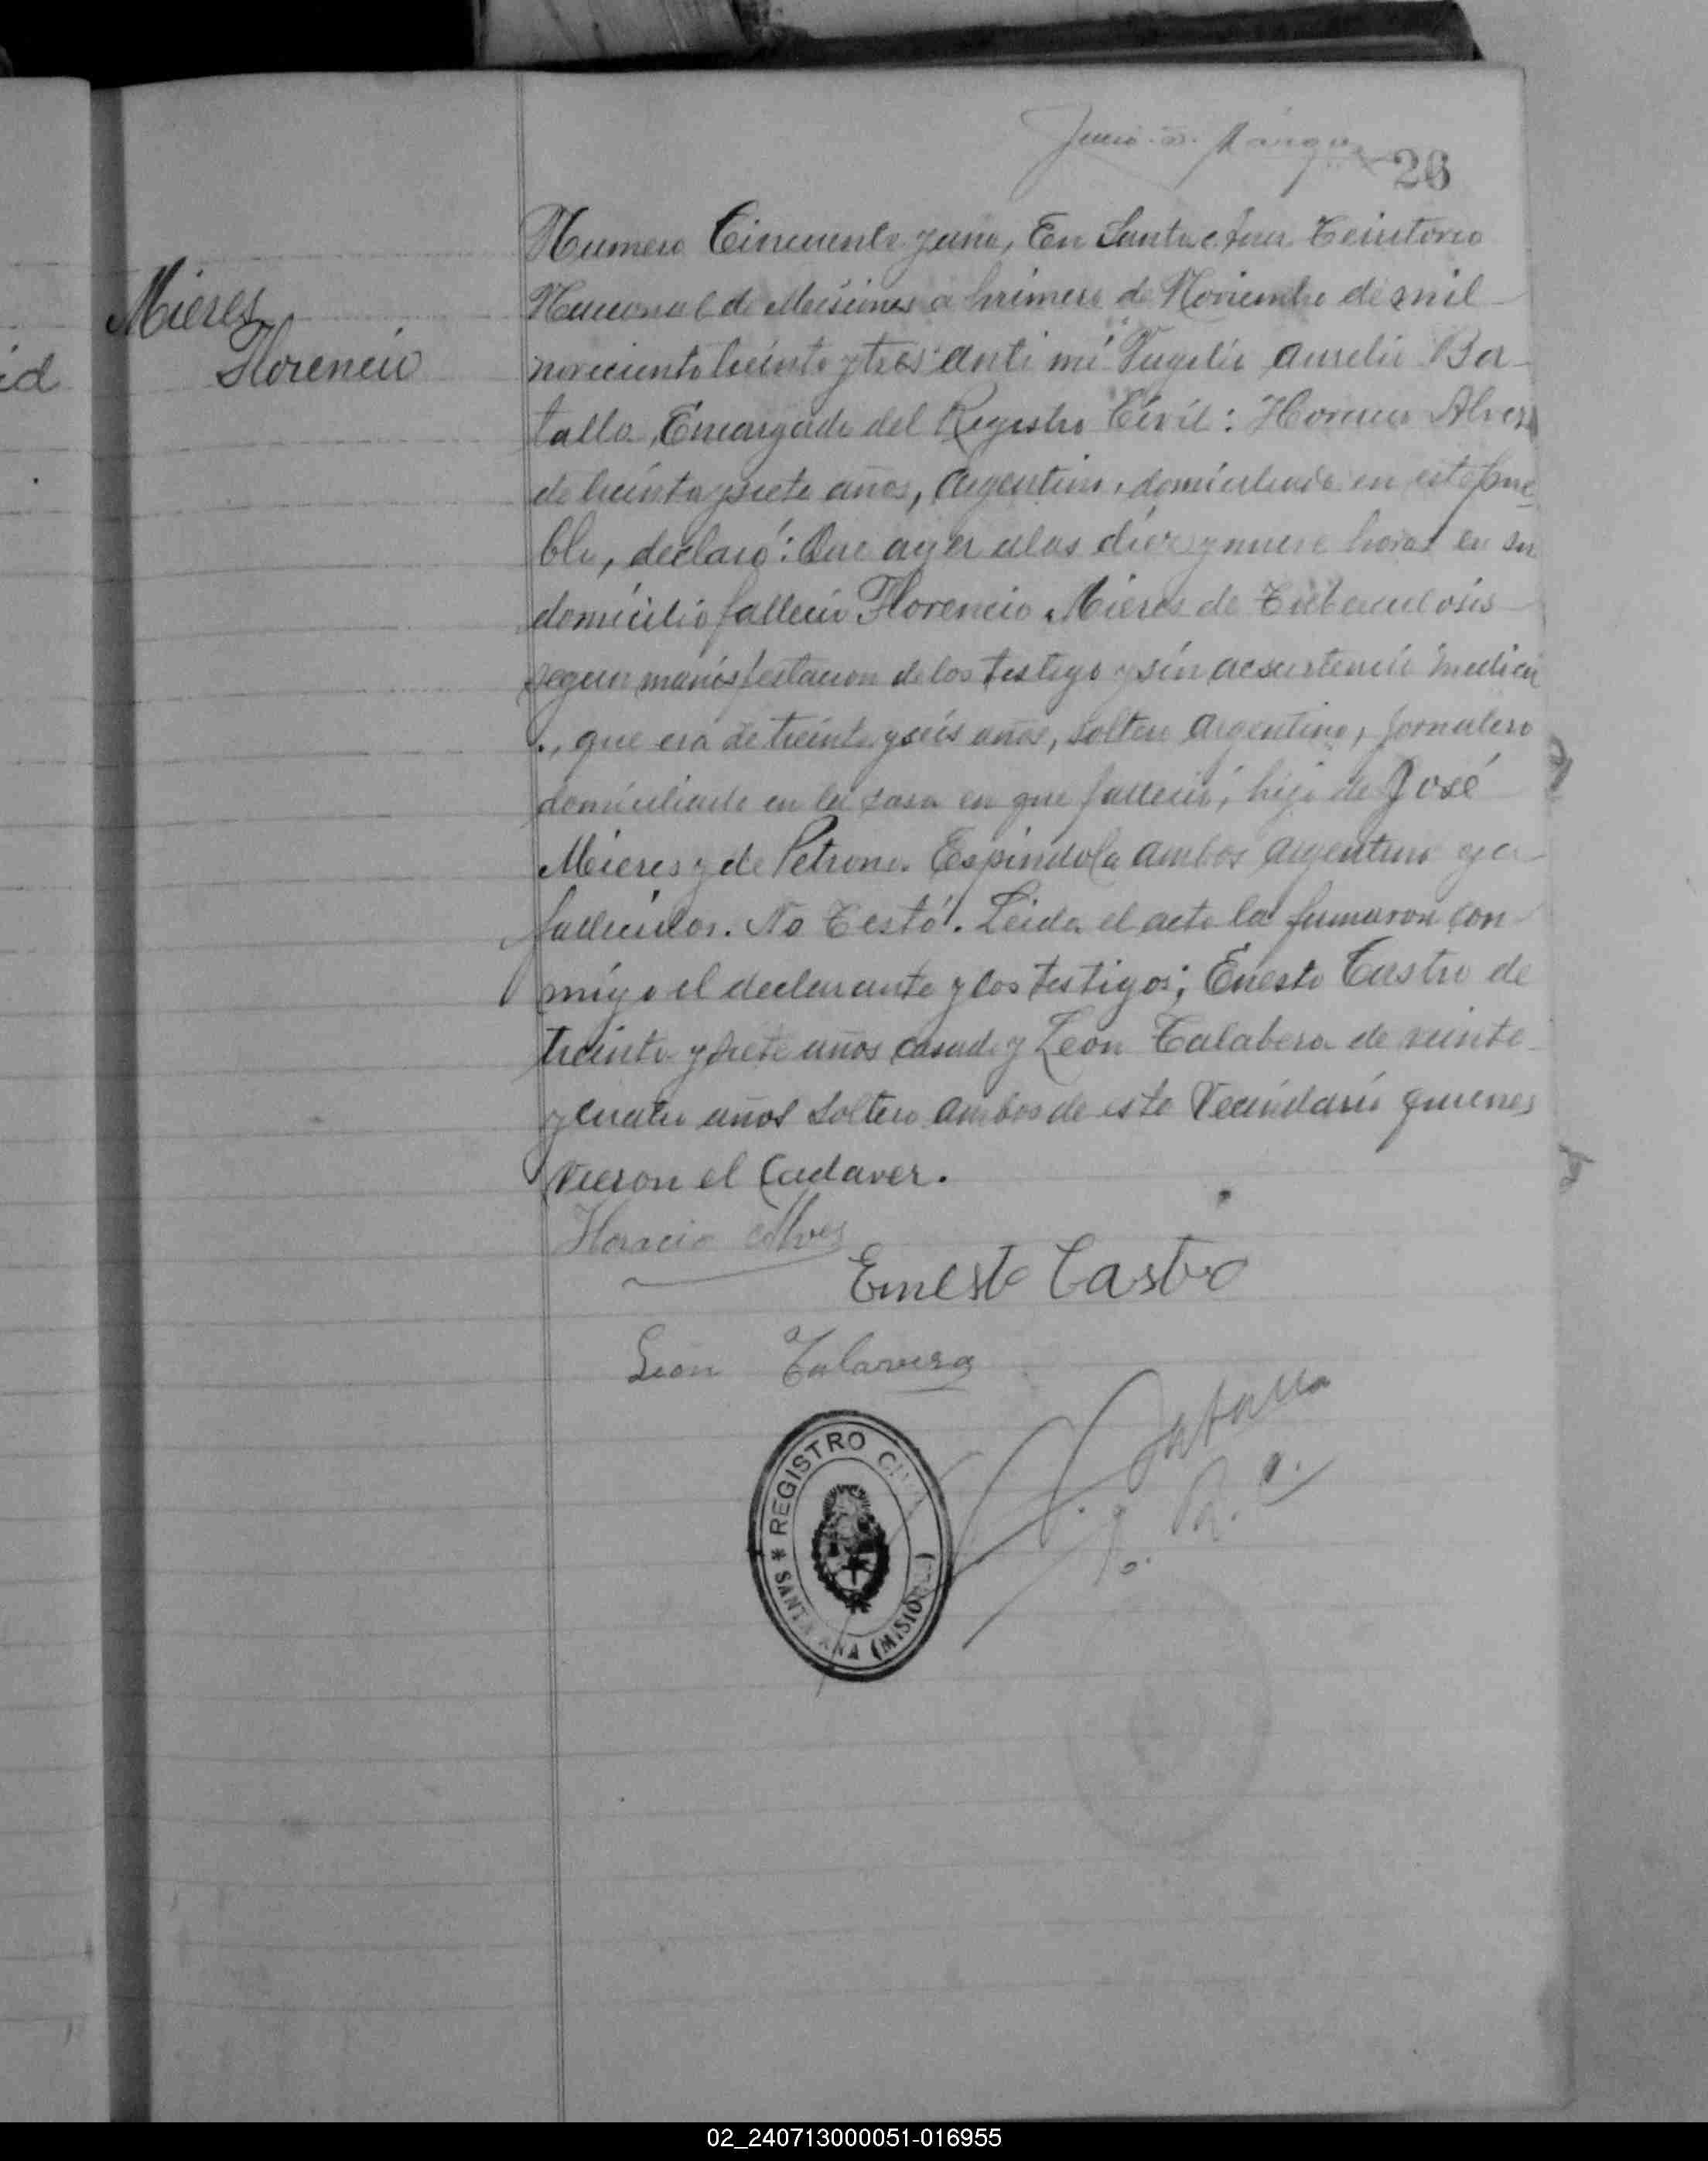 26
Mieres
Florencio
id
Numero Cincuenta y uno, En Santa Ana Territorio
Nacional de Misiones a primero de Noviembre de mil
novecients treinta y tres anti mi Virgilio Aurelio Ba-
talla Encargado del Registro Civil: Horacio Alves
de treinta y siete años, Argentino, domiciliado en este pue-
blo, declaró: Que ayer alas diez y nueve horas en su
domicilio fallecio Florencio Mieres de Tuberculosis
segun manisfestacion de los testigo y sin acsistencia medica
., que era de treinta y seis años, soltero Argentino, Jornalero
domiciliado en la casa en que fallecio, hijo de José
Mieres y de Petrona Espindola ambos argentino ya
fallecidos. No Testó. Leida el acta la firmaron con
migo el declarante y los testigos; Enesto Castro de
treinta y siete años casado y Leon Talabera de veinte
y cuatro años soltero ambos de este Vecindario quienes
vieron el Cadaver.
Horacio Alves
Ernesto Castro
Leon Talavera
Batalla
REGISTRO CIVIL
* SANTA ANA (MISIONES)
02_240713000051-016955